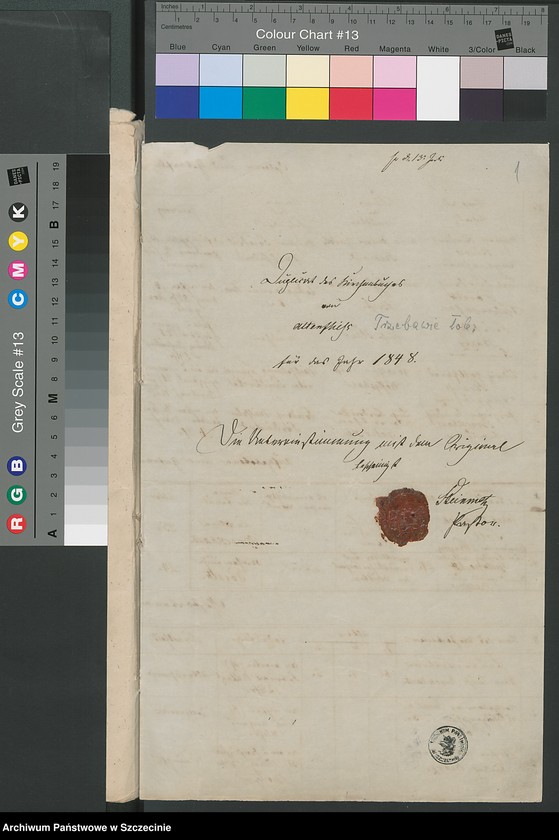 Inches 1 2 3 4 5 6 7 8
Centimetres 1 2 3 4 5 6 7 8 9 10 11 12 13 14 15 16 17 18 19
Colour Chart #13
DANES PICTA
Blue Cyan Green Yellow Red Magenta White 3/Color Black
Grey Scale #13
R G B C M Y K
A 1 2 3 4 5 6 M 8 9 10 11 12 13 14 15 B 17 18 19
1
Duplicat des Kirchenbuches
von
Altenfließ Trzebawie Łobz
für das Jahr 1848.
Die Uebereinstimmung mit dem Original
bescheinigt
Steinmetz
Pastor.
Archiwum Państwowe w Szczecinie